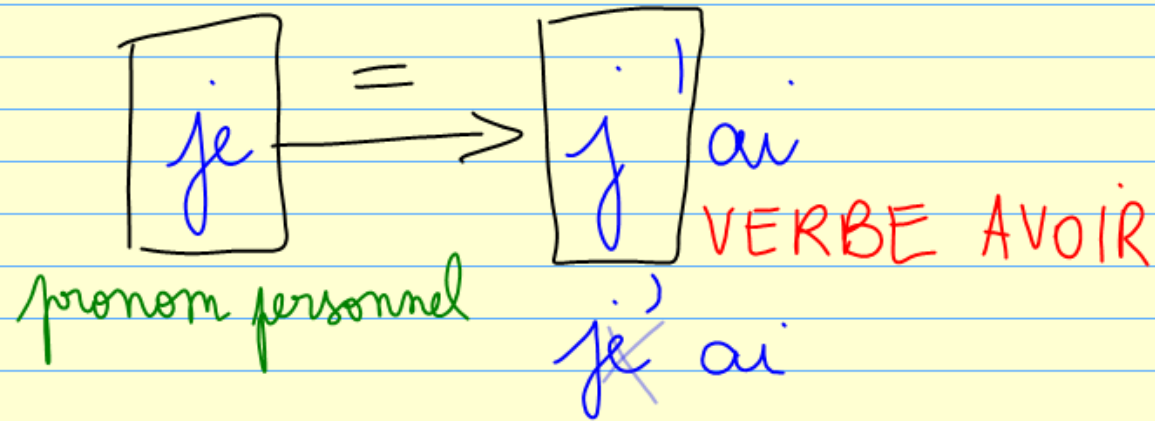 je = j' ai
VERBE AVOIR
pronom personnel
je' ai